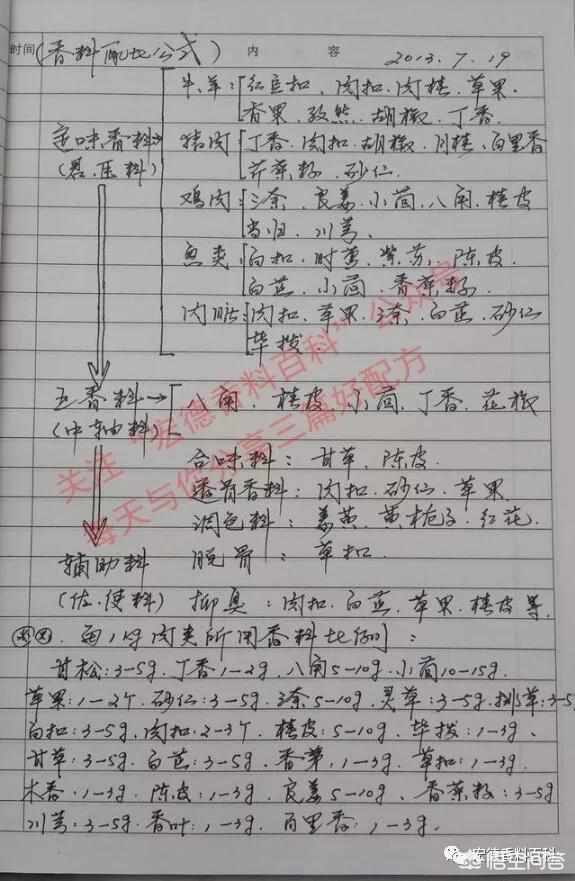 时间(香料配比公式) 内 容 2013.7.19
牛羊:红豆扣、肉扣.肉桂、草果.
香果、孜然、胡椒、丁香.
定味香料→ 猪肉 丁香.肉扣.胡椒.月桂、百里香
(君.臣料) 芹菜籽、砂仁.
鸡肉:三奈、良姜、小茴.八角.桂皮
当归、川芎、
鱼类:白扣.时萝、紫苏、陈皮.
白芷、小茴.香菜籽.
内脏 肉扣、草果、三奈、白芷、砂仁
毕拨.
五香料→ 八角.桂皮.小茴.丁香.花椒
(中轴料)
合味料:甘草、陈皮.
透骨香料:肉扣.砂仁.草果.
调色料:姜黄、黄栀子、红花.
脱骨:草扣.
辅助料
(佐.使料) 抑臭:肉扣.白芷、草果、桂皮等.
每1kg肉类所用香料比例:
甘松:3-5g.丁香1-2g.八角5-10g.小茴10-15g.
草果:1-2个.砂仁:3-5g.三奈5-10g.灵草:3-5g.排草:3-5g
白扣:3-5g.肉扣:2-3个.桂皮:5-10g.毕拨:1-3g、
甘草:3-5g.白芷:3-5g.香茅,1-3g.草扣:1-3g.
木香:1-3g.陈皮:1-3g.良姜5-10g、香菜籽:3-5g
川芎:3-5g.香叶:1-3g.百里香:1-3g.
关注"宏德香料百科"公众号
每天与你分享三篇好配方
宏德香料百科
悟空问答